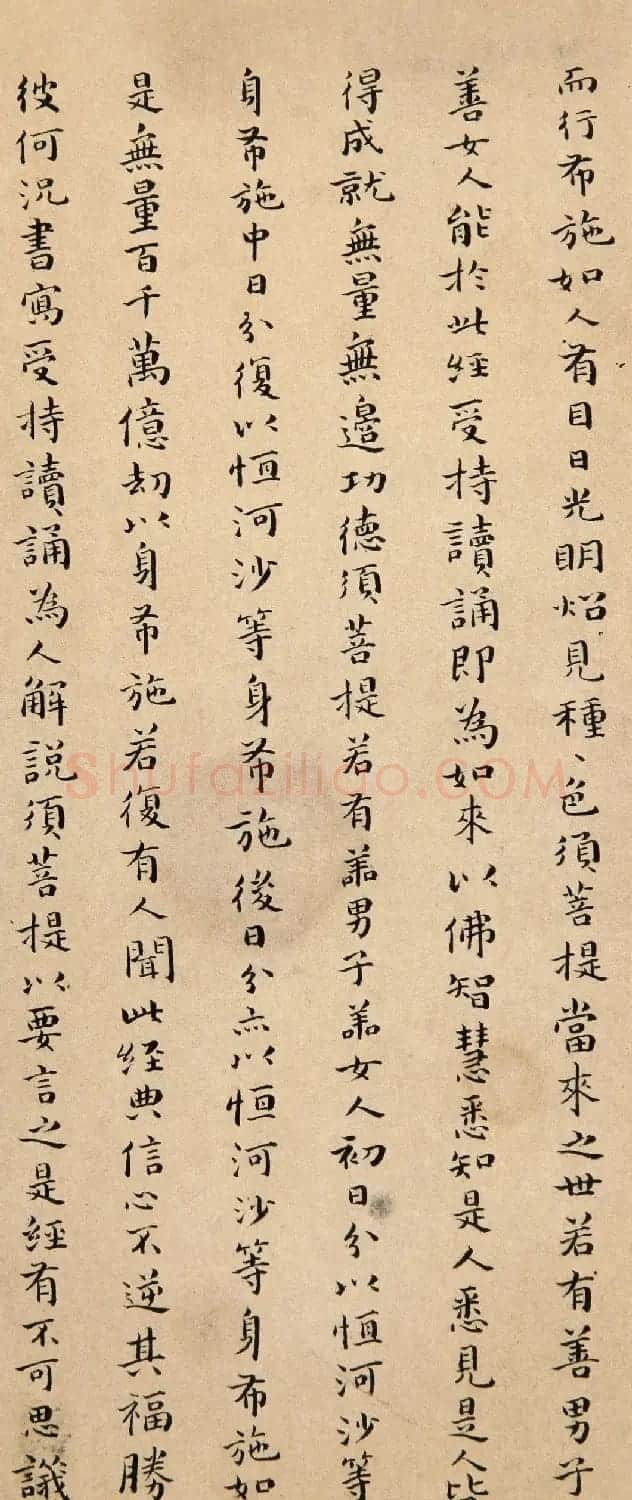 而行布施如人有目日光明炤見種、色須菩提當來之世若有善男子
善女人能於此經受持讀誦即為如來以佛智慧悉知是人悉見是人皆
得成就無量無邊功德須菩提若有善男子善女人初日分以恒河沙等
身布施中日分復以恒河沙等身布施後日分亦以恒河沙等身布施如
是無量百千萬億劫以身布施若復有人聞此經典信心不逆其福勝
彼何況書寫受持讀誦為人解說須菩提以要言之是經有不可思議
Shufaziliao.COM